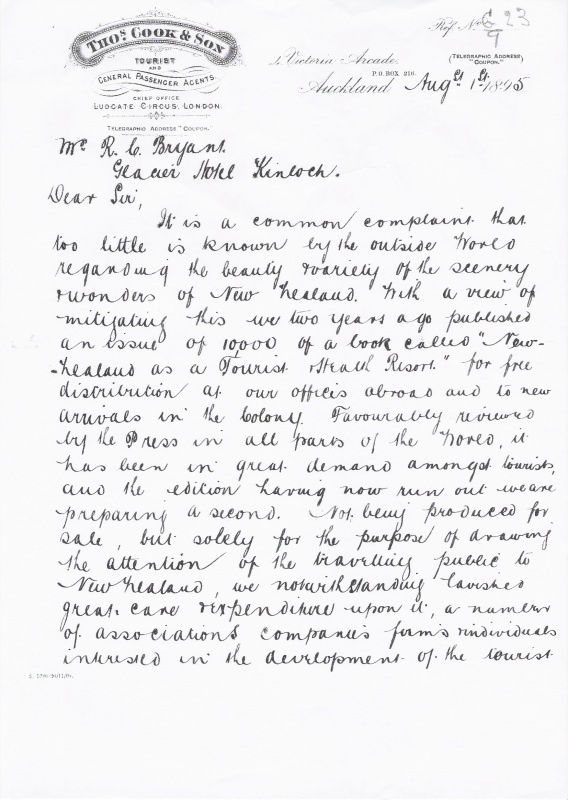 Thos. Cook & Son
TOURIST
AND
GENERAL PASSENGER AGENTS.
CHIEF OFFICE
LUDGATE CIRCUS, LONDON.
TELEGRAPHIC ADDRESS "COUPON."
Ref. No. G 23
9
(TELEGRAPHIC ADDRESS
"COUPON.")
1, Victoria Arcade,
P.O. BOX 216.
Auckland Augst 1st 1895
Mr R. C. Bryant.
Glacier Hotel Kinloch.
Dear Sir,
It is a common complaint that
too little is known by the outside World
regarding the beauty & variety of the scenery
& wonders of New Zealand. With a view of
mitigating this we two years ago published
an issue of 10000 of a book called "New-
-Zealand as a Tourist & Health Resort." for free
distribution at our offices abroad and to new
arrivals in the Colony. Favourably reviewed
by the Press in all parts of the World, it
has been in great demand amongst tourists,
and the edition having now run out we are
preparing a second. Not being produced for
sale, but solely for the purpose of drawing
the attention of the travelling public to
New Zealand, we notwithstanding lavished
great care & expenditure upon it, a number
of associations companies firms & individuals
interested in the development of the tourist